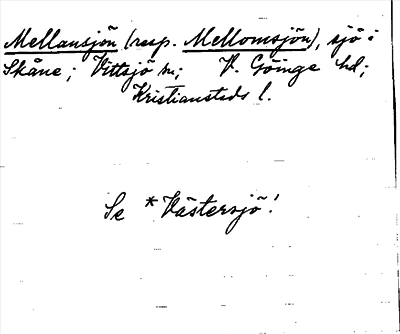 Mellansjön (resp. Mellomsjön), sjö i
Skåne; Vittsjö sn; V. Göinge hd;
Kristianstads l.
Se *Västersjö!